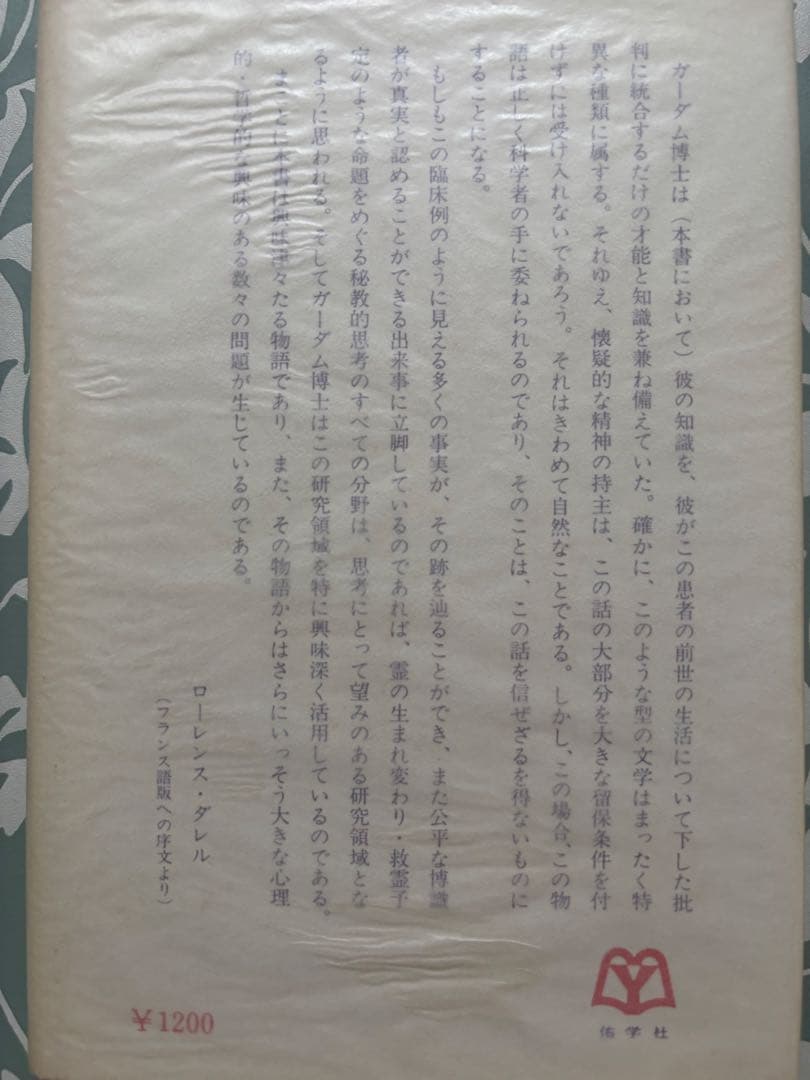 ガーダム博士は（本書において）彼の知識を、彼がこの患者の前世の生活について下した批
判に統合するだけの才能と知識を兼ね備えていた。確かに、このような型の文学はまったく特
異な種類に属する。それゆえ、懐疑的な精神の持主は、この話の大部分を大きな留保条件を付
けずには受け入れないであろう。それはきわめて自然なことである。しかし、この場合、この物
語は正しく科学者の手に委ねられるのであり、そのことは、この話を信ぜざるを得ないものに
することになる。
もしもこの臨床例のように見える多くの事実が、その跡を辿ることができ、また公平な博識
者が真実と認めることができる出来事に立脚しているのであれば、霊の生まれ変わり・救霊予
定のような命題をめぐる秘教的思考のすべての分野は、思考にとって望みのある研究領域とな
るように思われる。そしてガーダム博士はこの研究領域を特に興味深く活用しているのである。
まことに本書は興味津々たる物語であり、また、その物語からはさらにいっそう大きな心理
的・哲学的な興味のある数々の問題が生じているのである。
ローレンス・ダレル
（フランス語版への序文より）
佑学社
￥1200